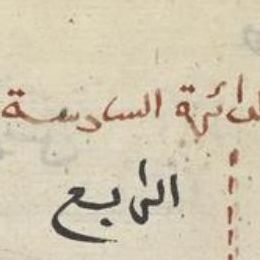 الدائرة السادسة
الرابع